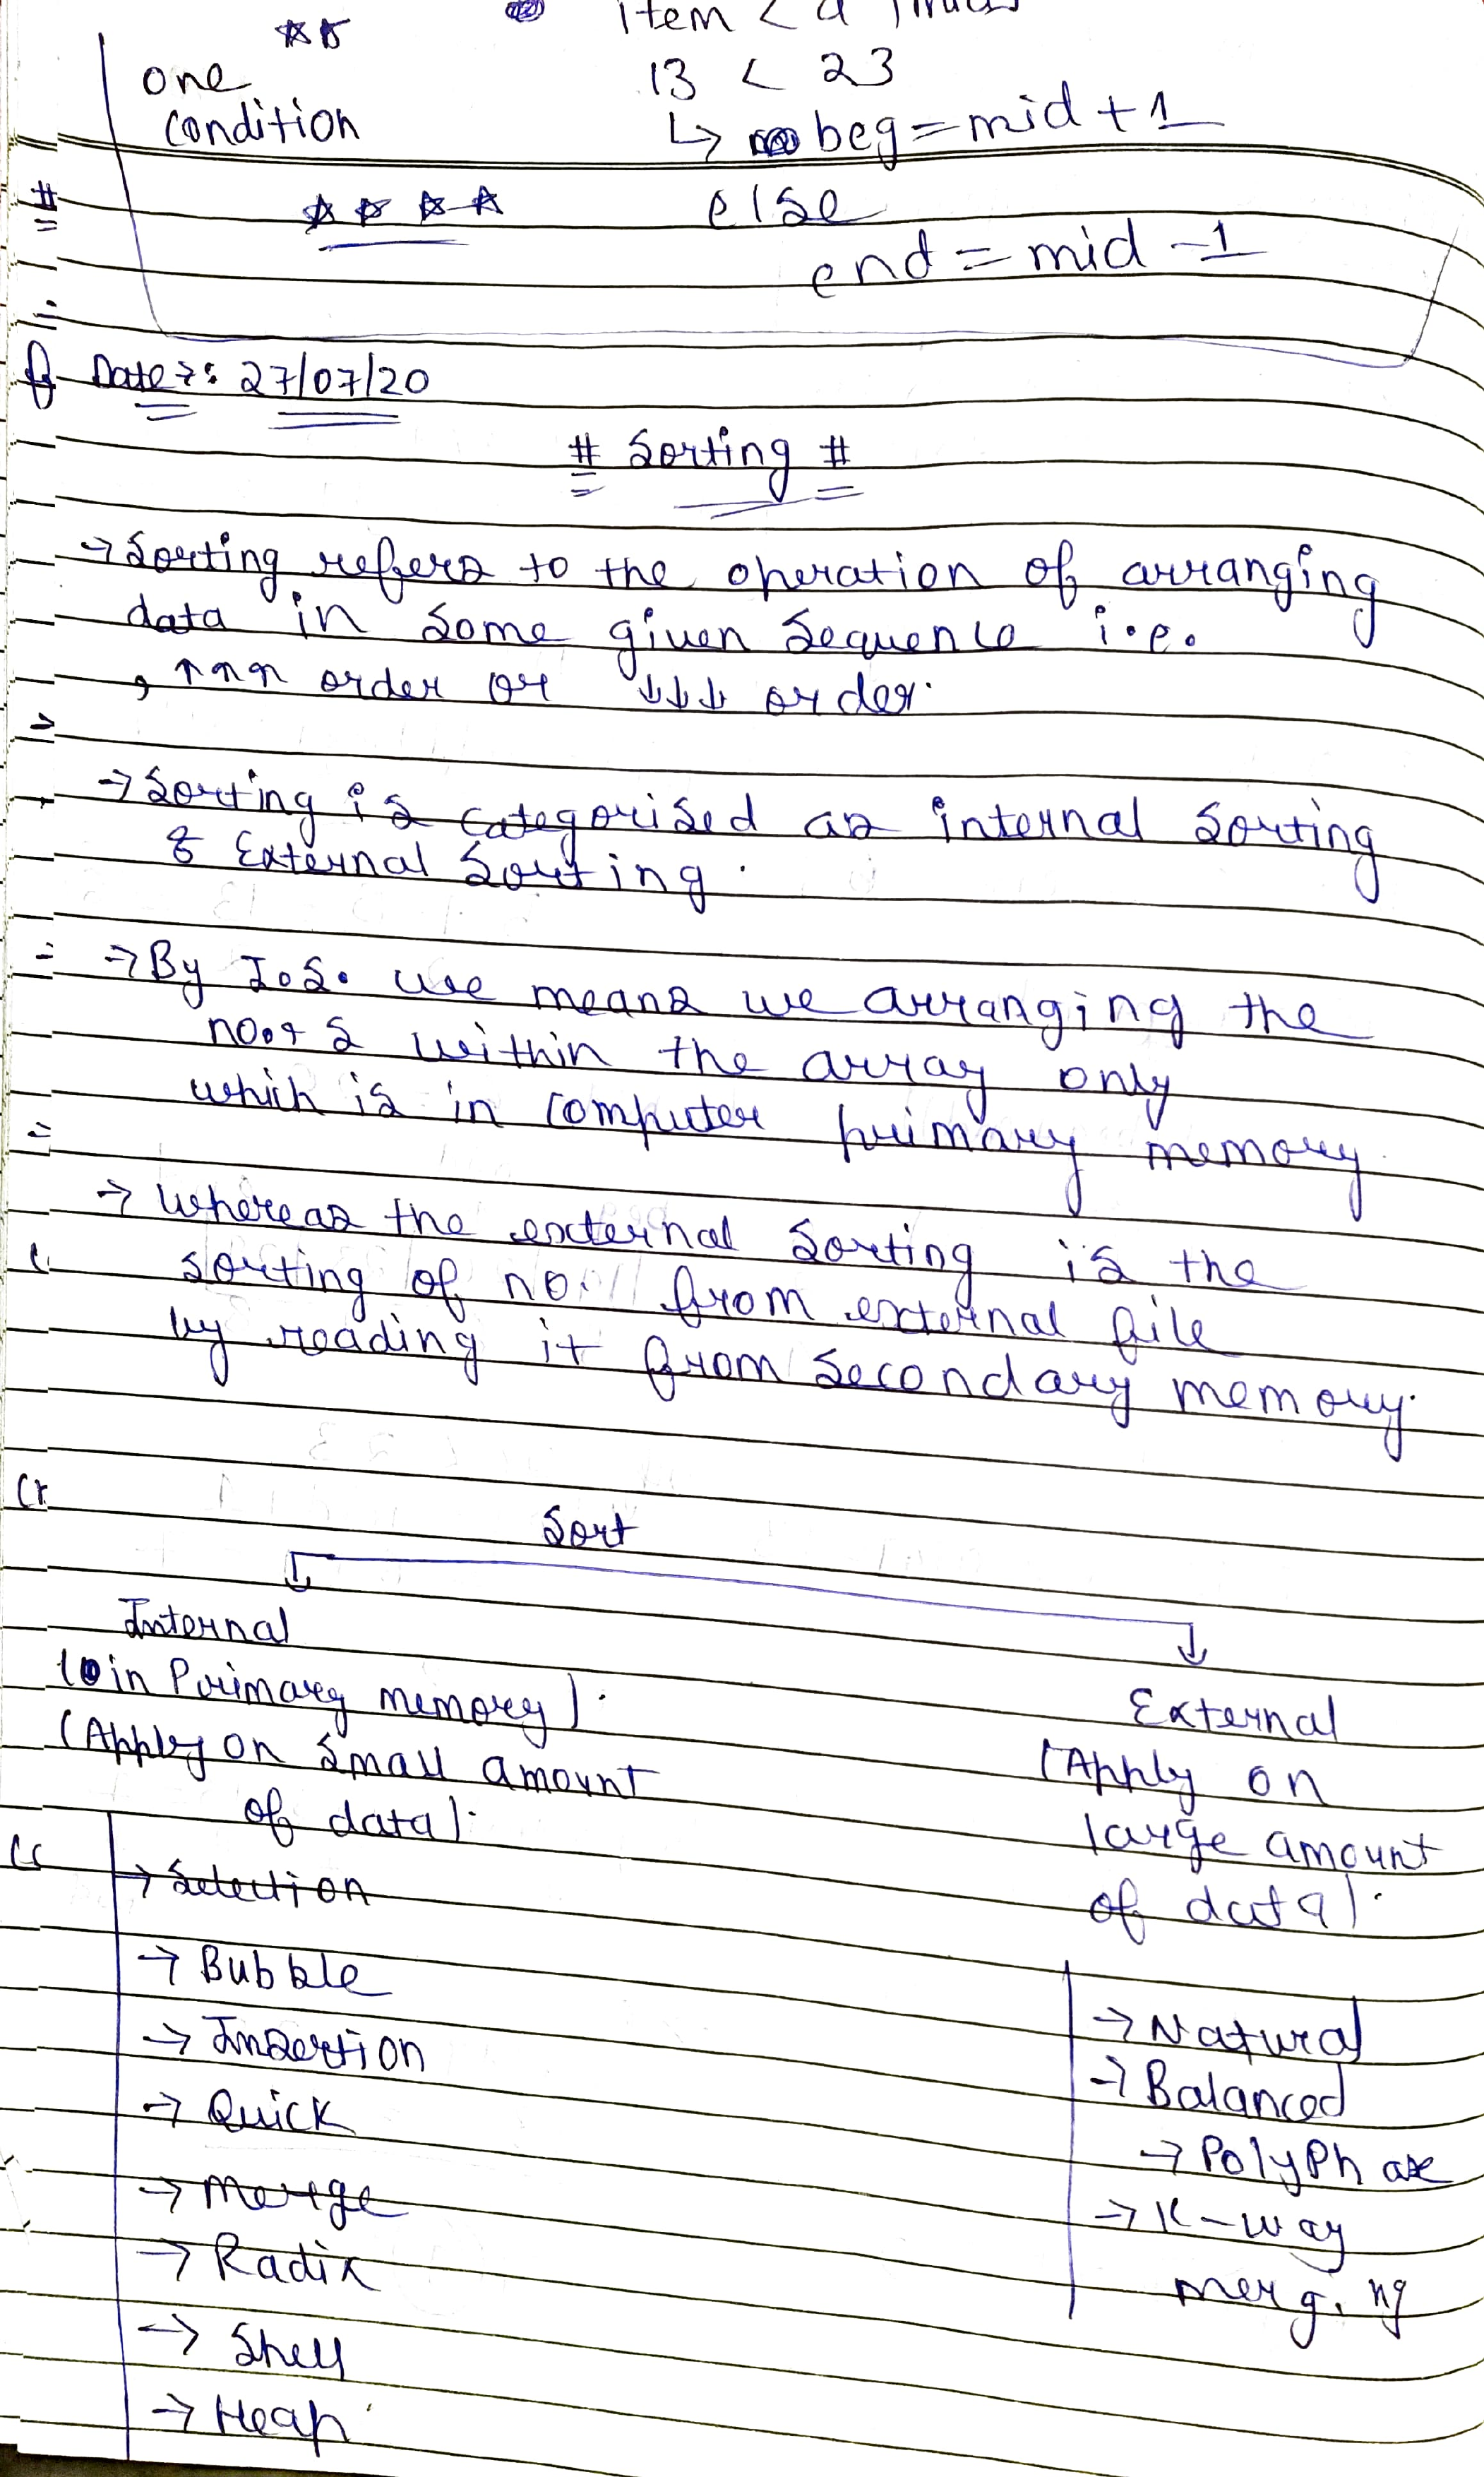 Item < a
one
13 < 23
condition
↳ beg = mid + 1
#
else
end = mid - 1
Date →: 27/07/20
# Sorting #
→ Sorting refers to the operation of arranging
data in some given sequence i.e.
, ↑↑↑ order or ↓↓↓ order.
→ Sorting is categorised as internal sorting
& External Sorting.
→ By I.S. we means we arranging the
within the array only
which is in computer primary memory
→ Whereas the external sorting is the
sorting of no. from external file
by reading it from secondary memory.
Sort
Internal
(in Primary memory).
(Apply on small amount
of data).
External
(Apply on
large amount
of data).
→ Selection
→ Bubble
→ Insertion
→ Quick
→ Merge
→ Radix
→ Shell
→ Heap
→ Natural
→ Balanced
→ PolyPhase
→ K-way
merging